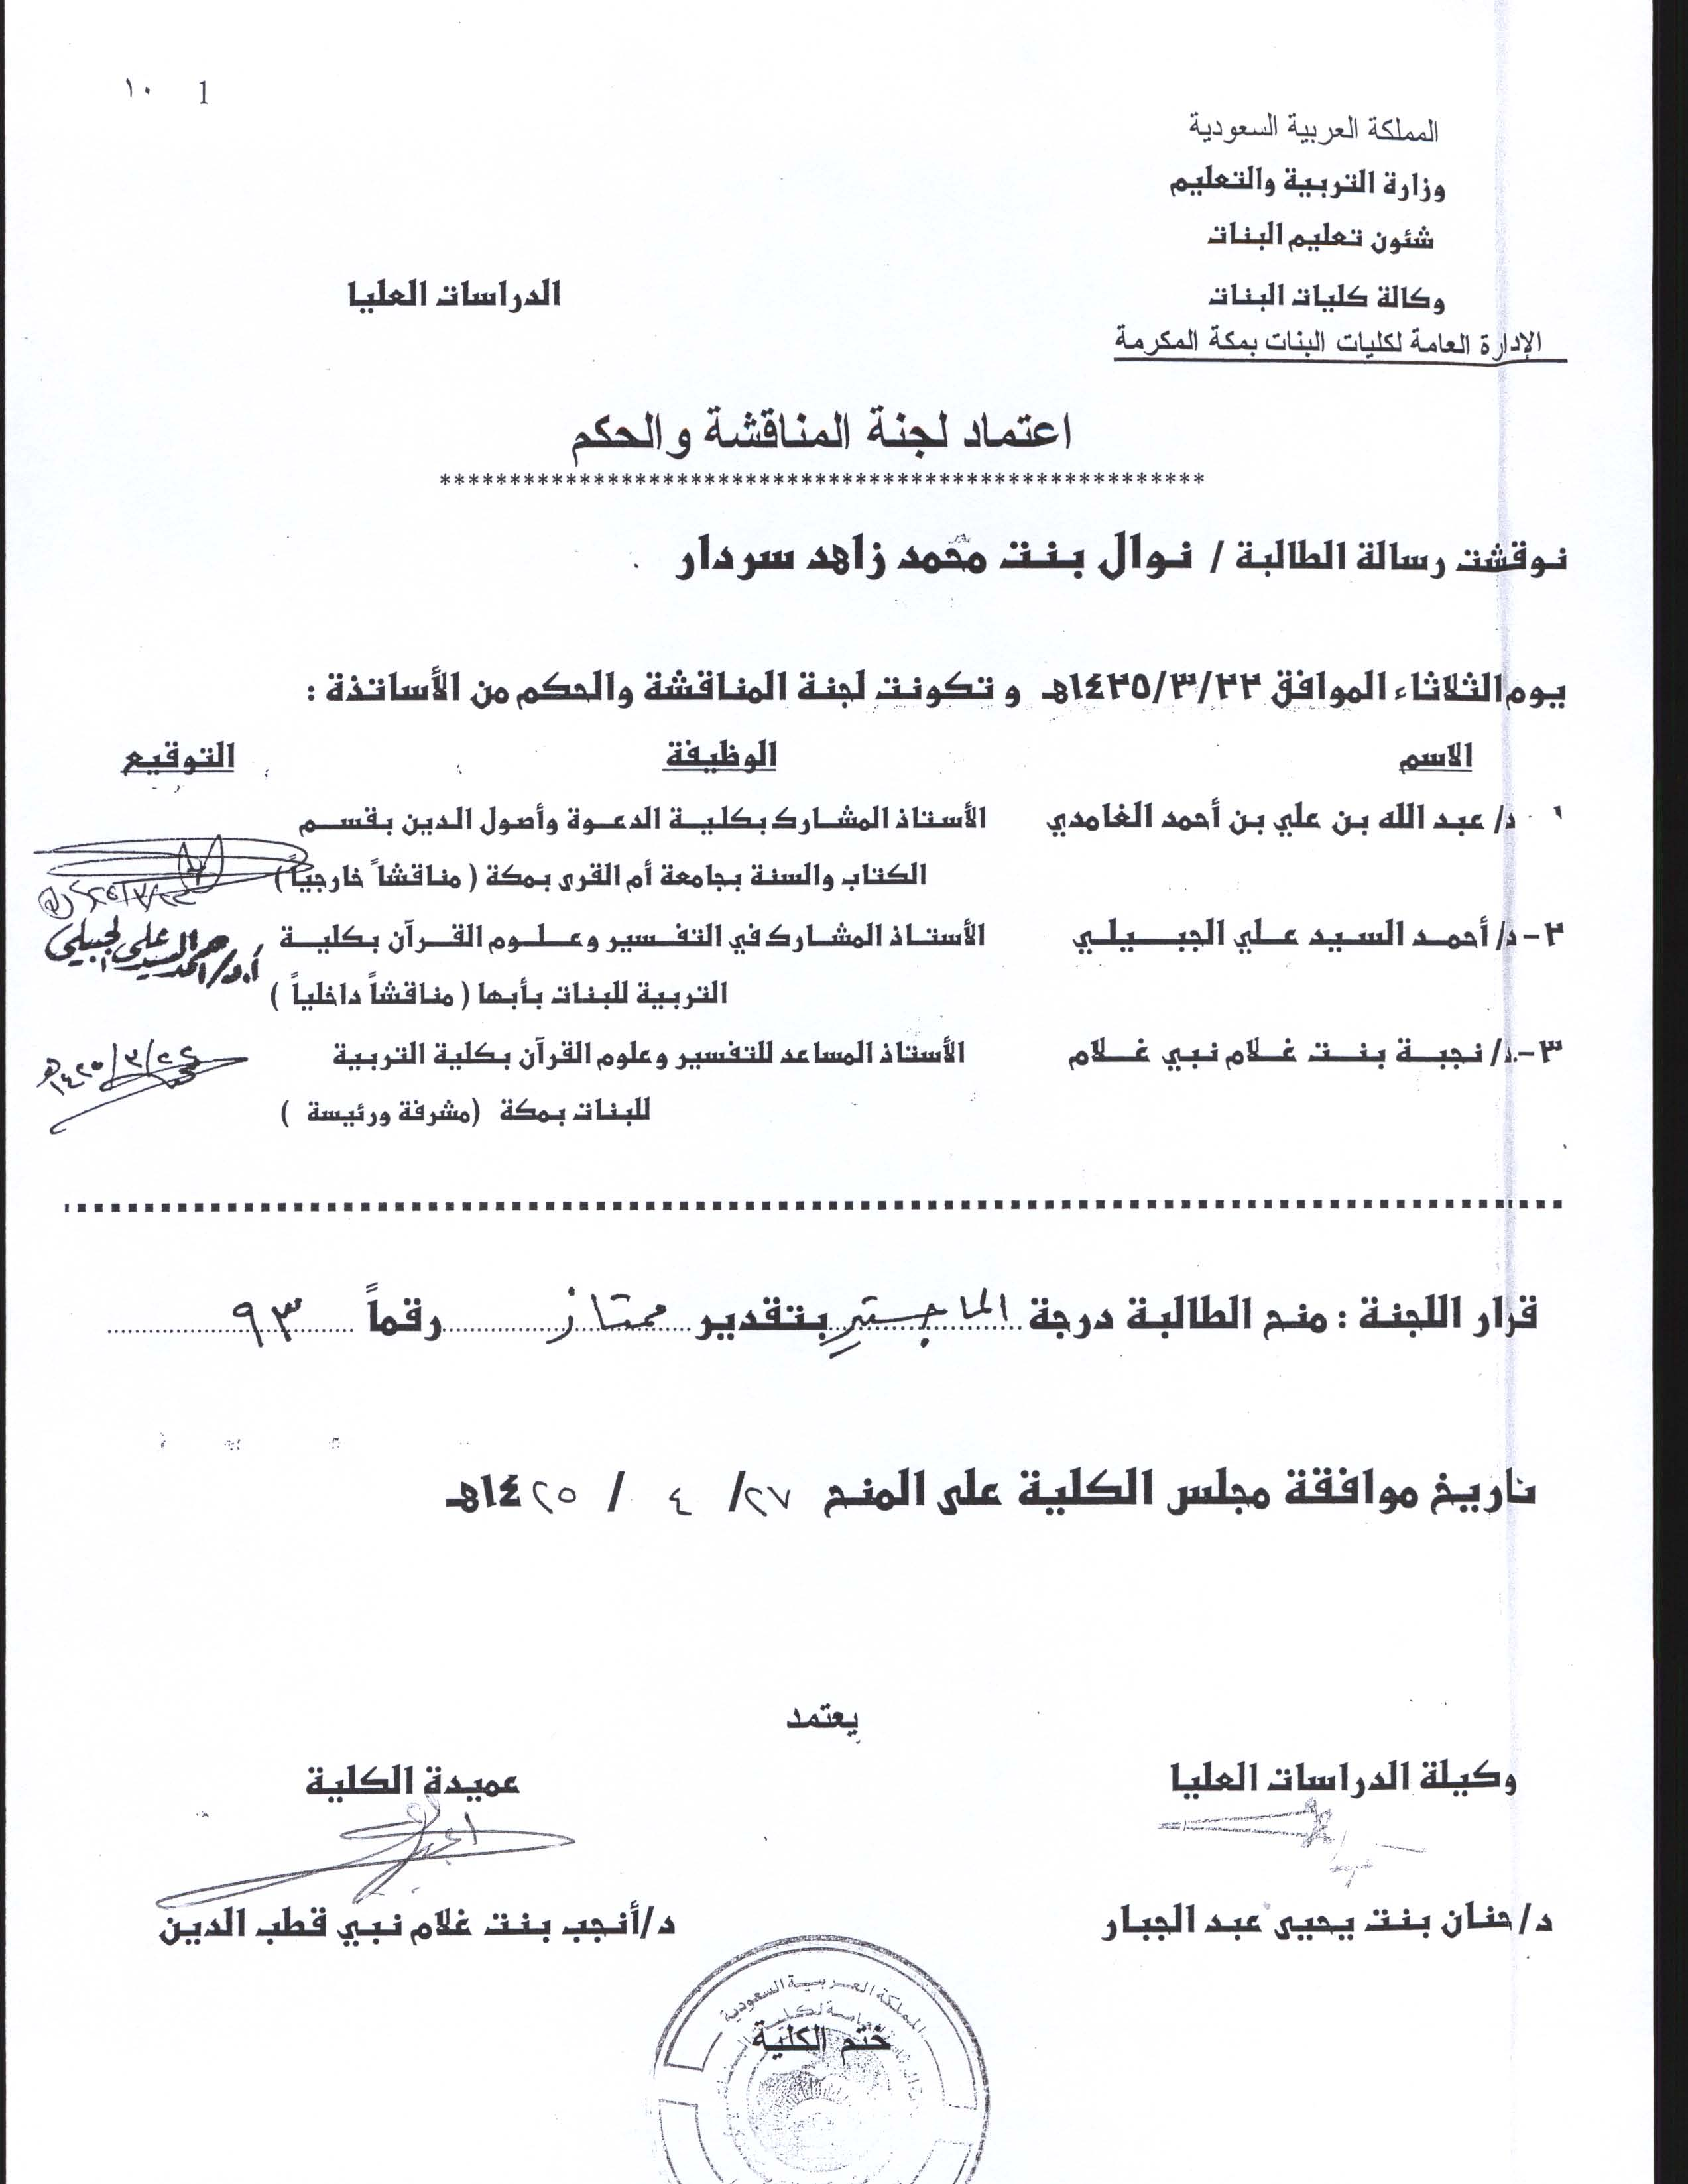 ١٠ 1
المملكة العربية السعودية
وزارة التربية والتعليم
شئون تعليم البنات
وكالة كليات البنات
الدراسات العليا
الإدارة العامة لكليات البنات بمكة المكرمة
اعتماد لجنة المناقشة والحكم
******************************************************
نوقشت رسالة الطالبة / نوال بنت محمد زاهد سردار
يوم الثلاثاء الموافق ١٤٢٥/٣/٢٢هـ وتكونت لجنة المناقشة والحكم من الأساتذة :
الاسم الوظيفة التوقيع
١- د/ عبد الله بن علي بن أحمد الغامدي الأستاذ المشارك بكلية الدعوة وأصول الدين بقسم
الكتاب والسنة بجامعة أم القرى بمكة ( مناقشاً خارجياً )
٢- د/ أحمد السيد علي الجبيلي الأستاذ المشارك في التفسير وعلوم القرآن بكلية
أ.د/أحمد السيد على الجبيلي
التربية للبنات بأبها ( مناقشاً داخلياً )
٣- د/ نجبة بنت غلام نبي غلام الأستاذ المساعد للتفسير وعلوم القرآن بكلية التربية
للبنات بمكة (مشرفة ورئيسة )
قرار اللجنة : منح الطالبة درجة الماجستير بتقدير ممتاز رقماً ٩٣
تاريخ موافقة مجلس الكلية على المنح ٢٧/ ٤ / ١٤٢٥هـ
يعتمد
وكيلة الدراسات العليا عميدة الكلية
د/حنان بنت يحيى عبد الجبار د/أنجب بنت غلام نبي قطب الدين
المملكة العربية السعودية
ختم الكلية